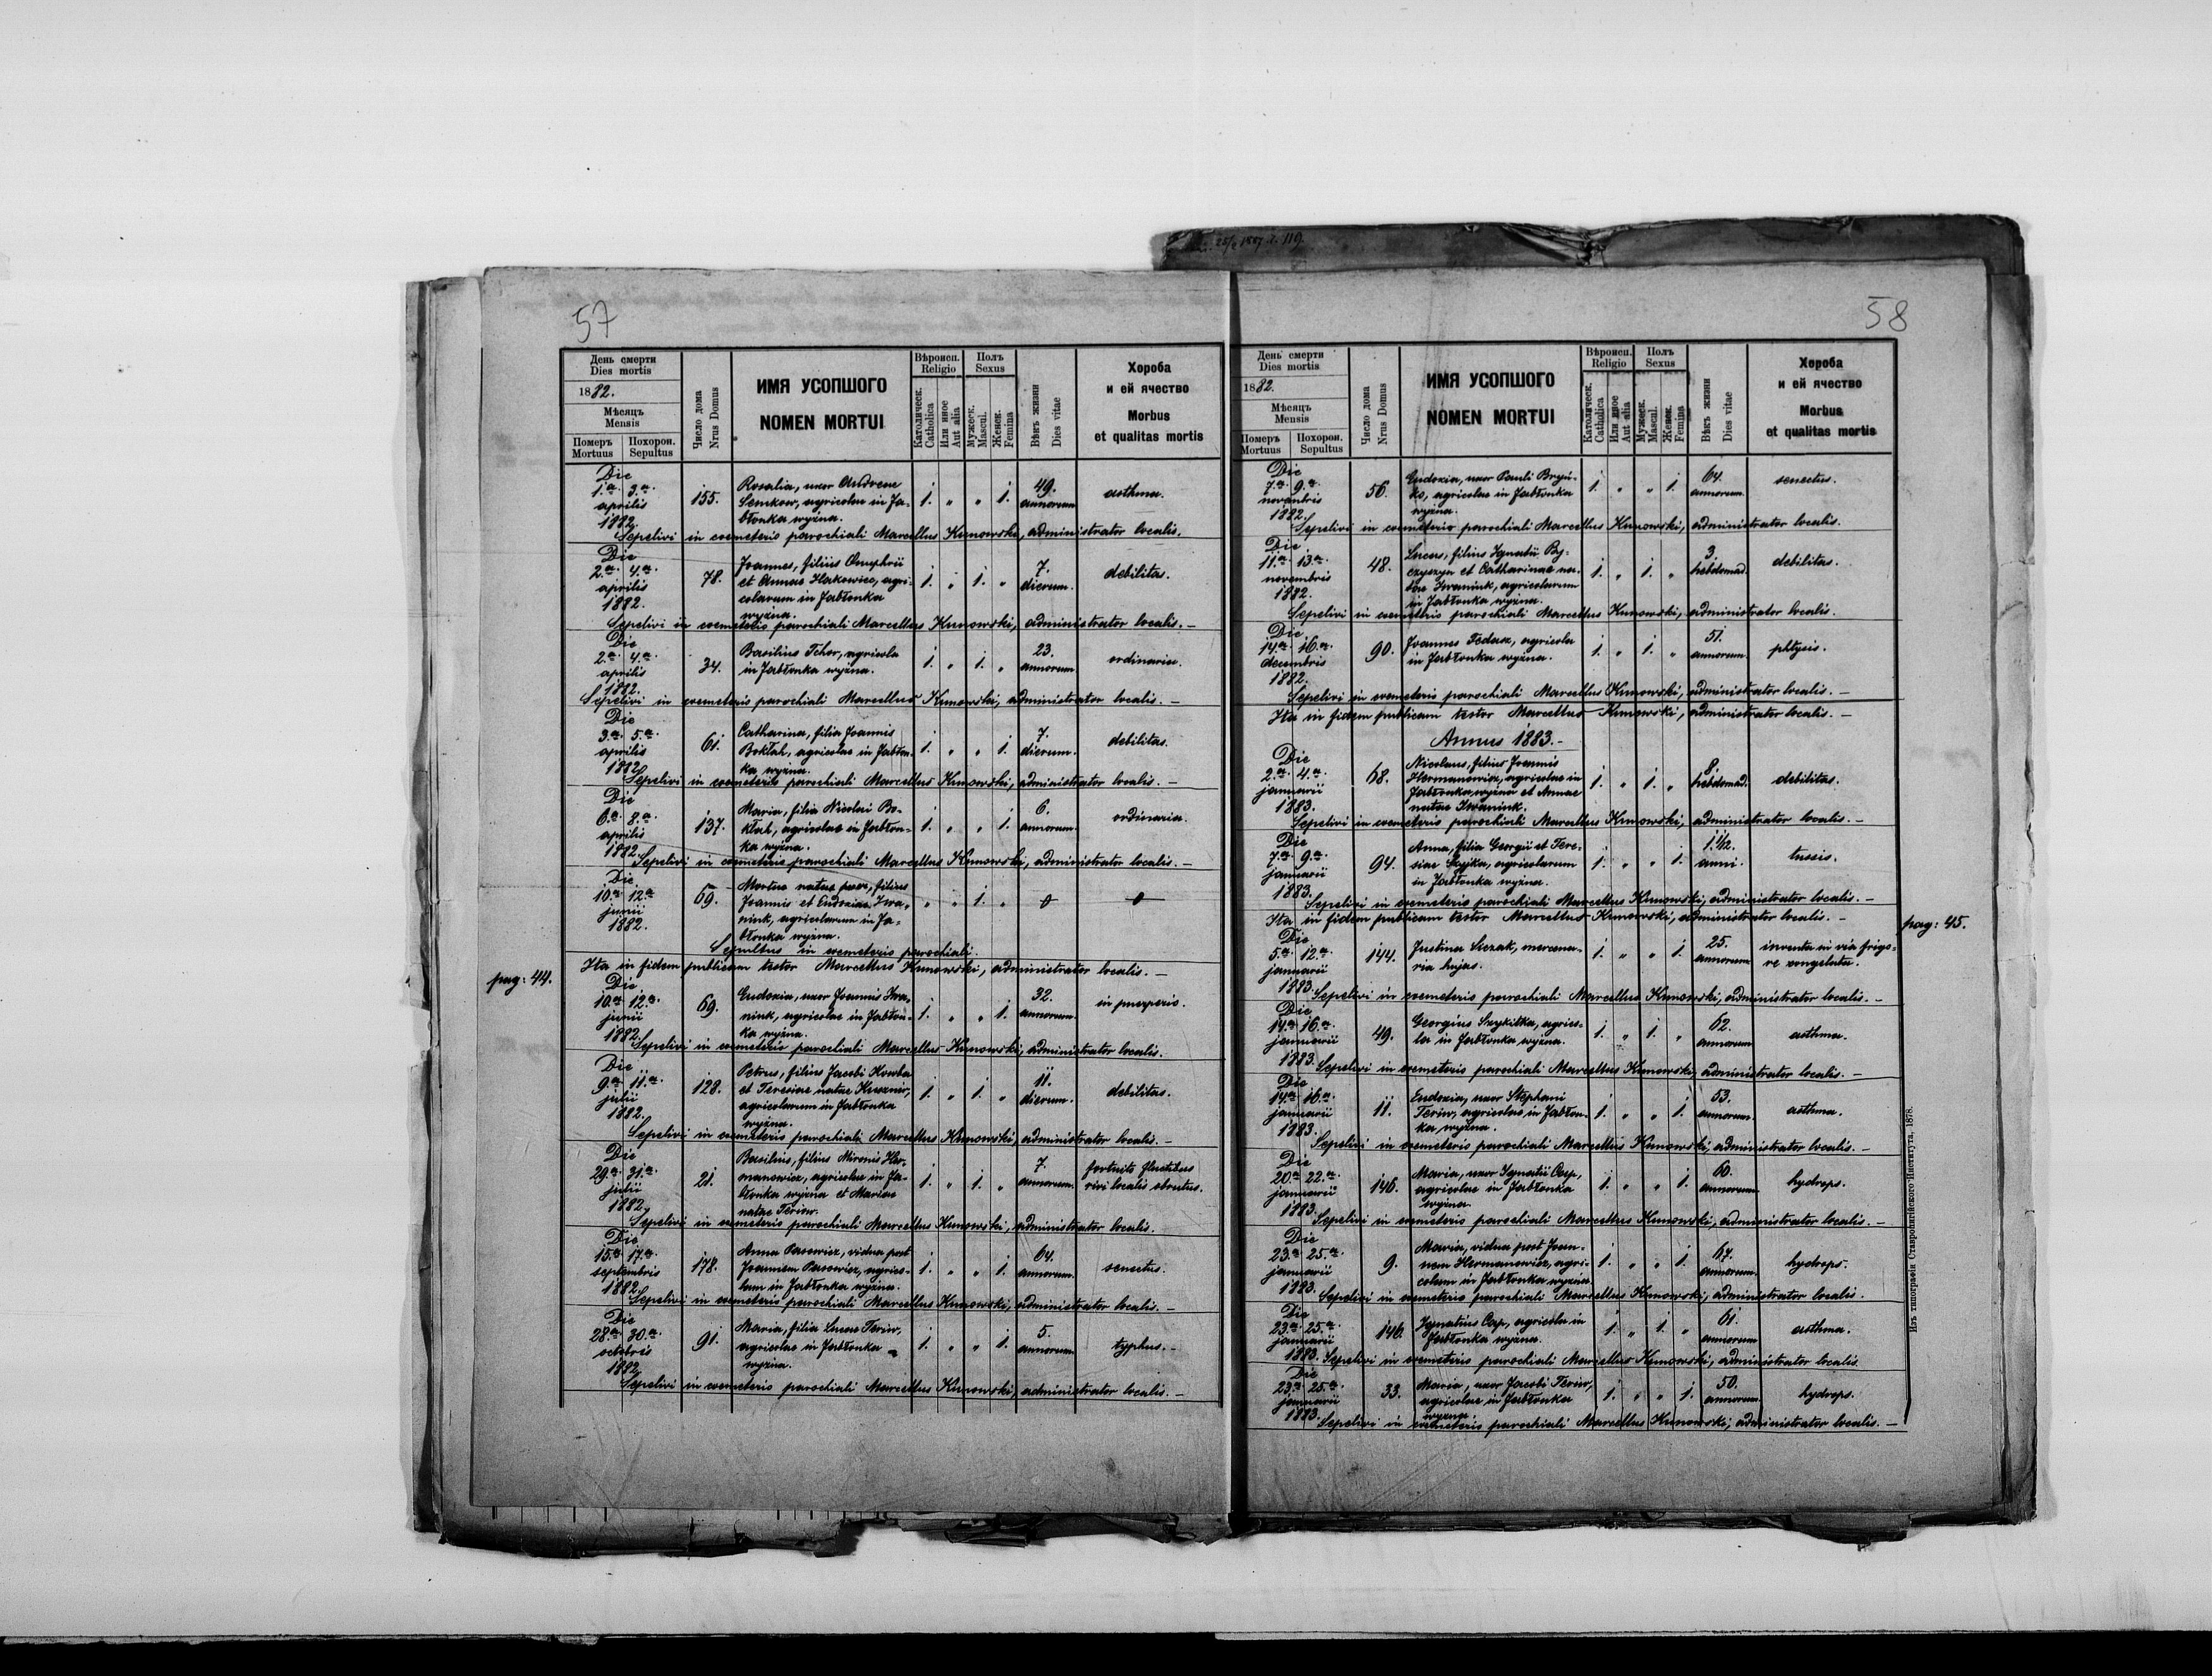 25/2 1887. l. 119.
57
День смерти
Dies mortis
1882.
Мѣсяцъ
Mensis
Померъ
Mortuus
Похорон.
Sepultus
Число дома
Nrus Domus
ИМЯ УСОПШОГО
NOMEN MORTUI
Вѣроисп.
Religio
Католическ.
Catholica
Или иное
Aut alia
Полъ
Sexus
Мужеск.
Mascul.
Женск.
Femina
Вѣкъ жизни
Dies vitae
Хороба
и ей ячество
Morbus
et qualitas mortis
Die
1.a 3.a
aprilis
1882.
155.
Rosalia, uxor Andreae
Senkow, agricolae in Ja-
błonka wyżna.
1. " " 1.
49.
annorum
asthma.
Sepelivi in coemeterio parochiali Marcellus Kunowski, administrator localis.
Die
2.a 4.a
aprilis
1882.
78.
Joannes, filius Onuphrii
et Annae Hakowicz, agri-
colarum in Jabłonka
wyżna.
1. " 1. "
7.
dierum.
debilitas.
Sepelivi in coemeterio parochiali Marcellus Kunowski, administrator localis. -
Die
2.a 4.a
aprilis
1882.
34.
Basilius Tchor, agricola
in Jabłonka wyżna.
1. " 1. "
23.
annorum
ordinaria.
Sepelivi in coemeterio parochiali Marcellus Kunowski, administrator localis. -
Die
3.a 5.a
aprilis
1882.
61.
Catharina, filia Joannis
Boktah, agricolae in Jabłon-
ka wyżna.
1. " " 1.
7.
dierum.
debilitas.
Sepelivi in coemeterio parochiali Marcellus Kunowski, administrator localis. -
Die
6.a 8.a
aprilis
1882.
137.
Maria, filia Nicolai Bo-
ktah, agricolae in Jabłon-
ka wyżna.
1. " " 1.
6.
annorum
ordinaria.
Sepelivi in coemeterio parochiali Marcellus Kunowski, administrator localis. -
Die
10.a 12.a
junii
1882.
69.
Mortuo natus puer, filius
Joannis et Eudoxiae Iwa-
niuk, agricolarum in Ja-
błonka wyżna.
" " 1. "
Sepultus in coemeterio parochiali.
Ita in fidem publicam testor Marcellus Kunowski, administrator localis. -
pag: 44.
Die
10.a 12.a
junii
1882.
69.
Eudoxia, uxor Joannis Iwa-
niuk, agricolae in Jabłon-
ka wyżna.
1. " " 1.
32.
annorum.
in puerperio.
Sepelivi in coemeterio parochiali Marcellus Kunowski, administrator localis.
Die
9.a 11.a
julii
1882.
128.
Petrus, filius Jacobi Howba
et Teresiae natae Kusznir,
agricolarum in Jabłonka
wyżna.
1. " 1. "
11.
dierum.
debilitas.
Sepelivi in coemeterio parochiali Marcellus Kunowski, administrator localis. -
Die
29.a 31.a
julii
1882.
21.
Basilius, filius Mironis Her-
manowicz, agricolae in Ja-
błonka wyżna et Mariae
natae Teriw.
1. " 1. "
7.
annorum.
fortuito fluctibus
rivi localis obrutus.
Sepelivi in coemeterio parochiali Marcellus Kunowski, administrator localis.
Die
15.a 17.a
septembris
1882.
178.
Anna Pasowicz, vidua post
Joannem Pasowicz, agrico-
lam in Jabłonka wyżna.
1. " " 1.
64.
annorum.
senectus.
Sepelivi in coemeterio parochiali Marcellus Kunowski, administrator localis. -
Die
28.a 30.a
octobris
1882.
91.
Maria, filia Lucae Teriw,
agricolae in Jabłonka
wyżna.
1. " " 1.
5.
annorum
typhus. -
Sepelivi in coemeterio parochiali Marcellus Kunowski, administrator localis. -
58
День смерти
Dies mortis
1882.
Мѣсяцъ
Mensis
Померъ
Mortuus
Похорон.
Sepultus
Число дома
Nrus Domus
ИМЯ УСОПШОГО
NOMEN MORTUI
Вѣроисп.
Religio
Католическ.
Catholica
Или иное
Aut alia
Полъ
Sexus
Мужеск.
Mascul.
Женск.
Femina
Вѣкъ жизни
Dies vitae
Хороба
и ей ячество
Morbus
et qualitas mortis
Die
7.a 9.a
novembris
1882.
56.
Eudoxia, uxor Pauli Bryń-
ko, agricolae in Jabłonka
wyżna.
1. " " 1.
64.
annorum.
senectus.
Sepelivi in coemeterio parochiali Marcellus Kunowski, administrator localis.
Die
11.a 13.a
novembris
1882.
48.
Lucas, filius Ignatii By-
czyszyn et Catharinae na-
tae Iwaniuk, agricolarum
in Jabłonka wyżna.
1. " 1. "
3.
hebdomad.
debilitas.
Sepelivi in coemeterio parochiali Marcellus Kunowski, administrator localis.
Die
14.a 16.a
decembris
1882.
90.
Joannes Fedasz, agricola
in Jabłonka wyżna.
1. " 1. "
51.
annorum.
phtysis.
Sepelivi in coemeterio parochiali Marcellus Kunowski, administrator localis. -
Ita in fidem publicam testor Marcellus Kunowski, administrator localis. -
Annus 1883. -
Die
2.a 4.a
januarii
1883.
68.
Nicolaus, filius Joannis
Hermanowicz, agricolae in
Jabłonka wyżna et Annae
natae Iwaniuk.
1. " 1. "
8.
hebdomad.
debilitas.
Sepelivi in coemeterio parochiali Marcellus Kunowski, administrator localis. -
Die
7.a 9.a
januarii
1883.
94.
Anna, filia Georgii et Tere-
siae Szyjka, agricolarum
in Jabłonka wyżna.
1. " " 1.
1.1/2.
anni.
tussis.
Sepelivi in coemeterio parochiali Marcellus Kunowski, administrator localis. -
Ita in fidem publicam testor Marcellus Kunowski, administrator localis. -
pag: 45.
Die
5.a 12.a
januarii
1883.
144.
Justina Liczak, mercena-
ria hujas.
1. " " 1.
25.
annorum
inventa in via frigo-
re congelata.
Sepelivi in coemeterio parochiali Marcellus Kunowski, administrator localis. -
Die
14.a 16.a
januarii
1883.
49.
Georgius Szykitka, agrico-
la in Jabłonka wyżna.
1. " 1. "
62.
annorum
asthma.
Sepelivi in coemeterio parochiali Marcellus Kunowski, administrator localis. -
Die
14.a 16.a
januarii
1883.
11.
Eudoxia, uxor Stephani
Teriw, agricolae in Jabłon-
ka wyżna.
1. " " 1.
53.
annorum.
asthma.
Sepelivi in coemeterio parochiali Marcellus Kunowski, administrator localis. -
Die
20.a 22.a
januarii
1883.
146.
Maria, uxor Ignatii Cap,
agricolae in Jabłonka
wyżna.
1. " " 1.
60.
annorum
hydrops.
Sepelivi in coemeterio parochiali Marcellus Kunowski, administrator localis. -
Die
23.a 25.a
januarii
1883.
9.
Maria, vidua post Joan-
nem Hermanowicz, agri-
colam in Jabłonka wyżna.
1. " " 1.
67.
annorum.
hydrops.
Sepelivi in coemeterio parochiali Marcellus Kunowski, administrator localis.
Die
23.a 25.a
januarii
1883.
146.
Ignatius Cap, agricola in
Jabłonka wyżna.
1. " 1. "
61.
annorum
asthma.
Sepelivi in coemeterio parochiali Marcellus Kunowski, administrator localis.
Die
23.a 25.a
januarii
1883.
33.
Maria, uxor Jacobi Teriw,
agricolae in Jabłonka
wyżna.
1. " " 1.
50.
annorum.
hydrops.
Sepelivi in coemeterio parochiali Marcellus Kunowski, administrator localis. -
Изъ типографіи Ставропигійского Института, 1878.